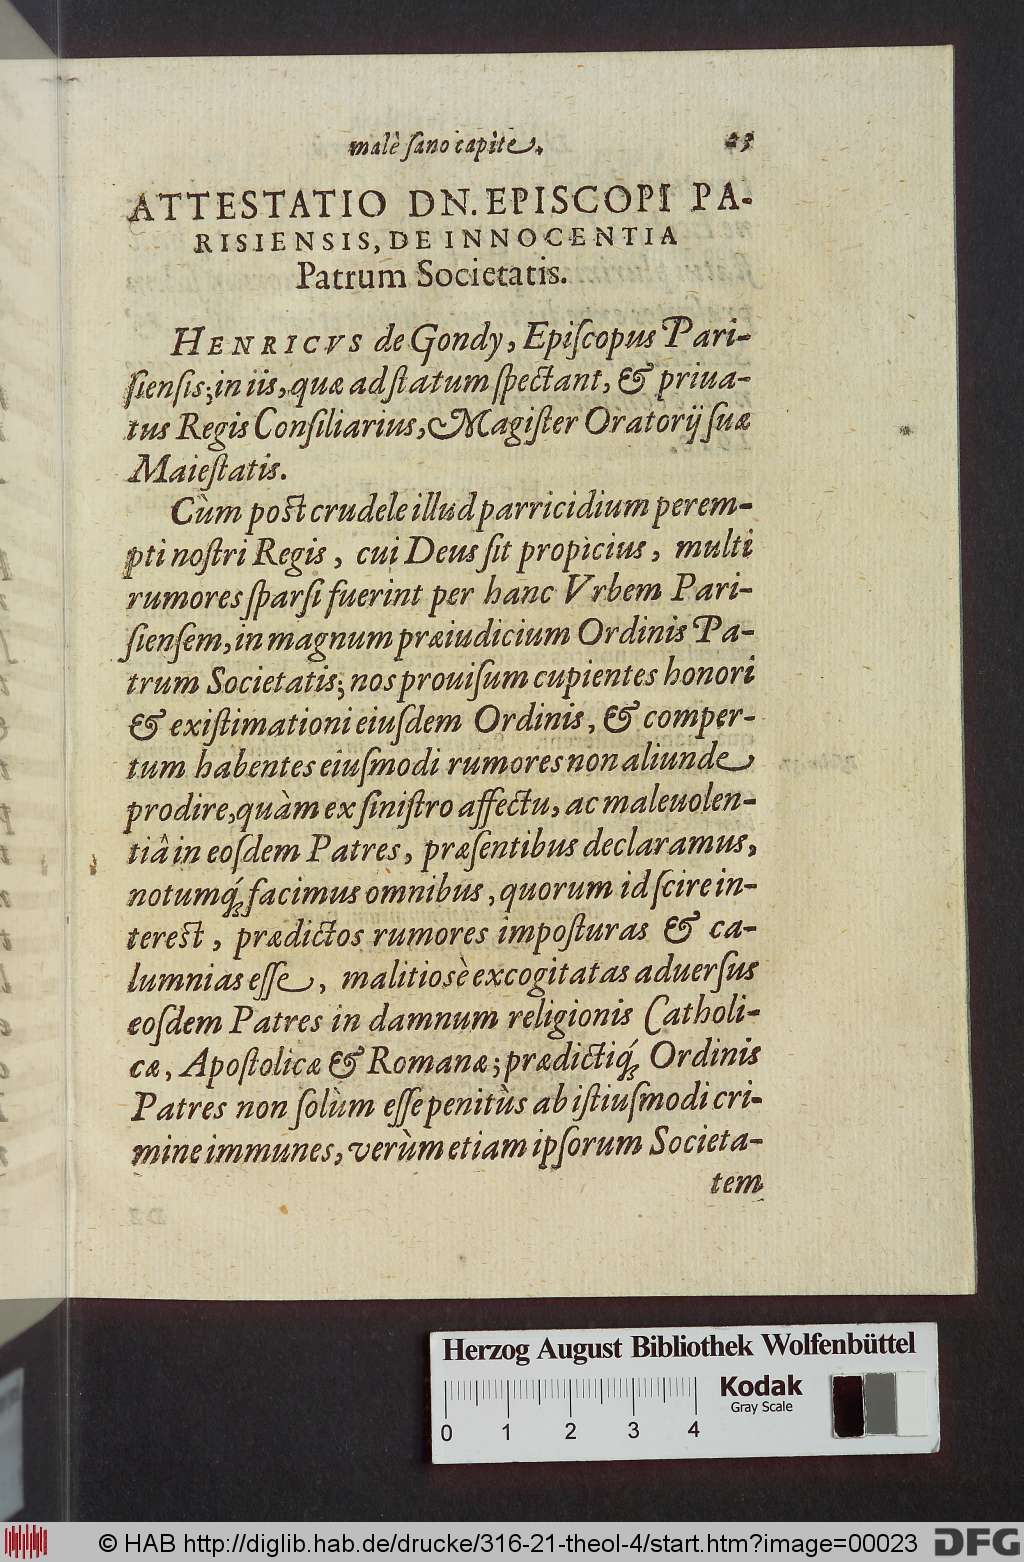 malè ſano capite. 23
ATTESTATIO DN. EPISCOPI PA-
RISIENSIS, DE INNOCENTIA
Patrum Societatis.
HENRICVS de Gondy, Epiſcopus Pari-
ſienſis; in iis, quæ ad ſtatum ſpectant, & priua-
tus Regis Conſiliarius, Magiſter Oratorij ſuæ
Maieſtatis.
Cùm poſt crudele illud parricidium perem-
pti noſtri Regis, cui Deus ſit propicius, multi
rumores ſparſi fuerint per hanc Vrbem Pari-
ſienſem, in magnum præiudicium Ordinis Pa-
trum Societatis; nos prouiſum cupientes honori
& exiſtimationi eiuſdem Ordinis, & comper-
tum habentes eiuſmodi rumores non aliunde
prodire, quàm ex ſiniſtro affectu, ac maleuolen-
tiâ in eoſdem Patres, præſentibus declaramus,
notumq́; facimus omnibus, quorum id ſcire in-
tereſt, prædictos rumores impoſturas & ca-
lumnias eſſe, malitiosè excogitatas aduerſus
eoſdem Patres in damnum religionis Catholi-
cæ, Apoſtolicæ & Romanæ; prædictiq́; Ordinis
Patres non ſolùm eſſe penitùs ab iſtiuſmodi cri-
mine immunes, verùm etiam ipſorum Societa-
tem
Herzog August Bibliothek Wolfenbüttel
Kodak
Gray Scale
0 1 2 3 4
© HAB http://diglib.hab.de/drucke/316-21-theol-4/start.htm?image=00023 DFG